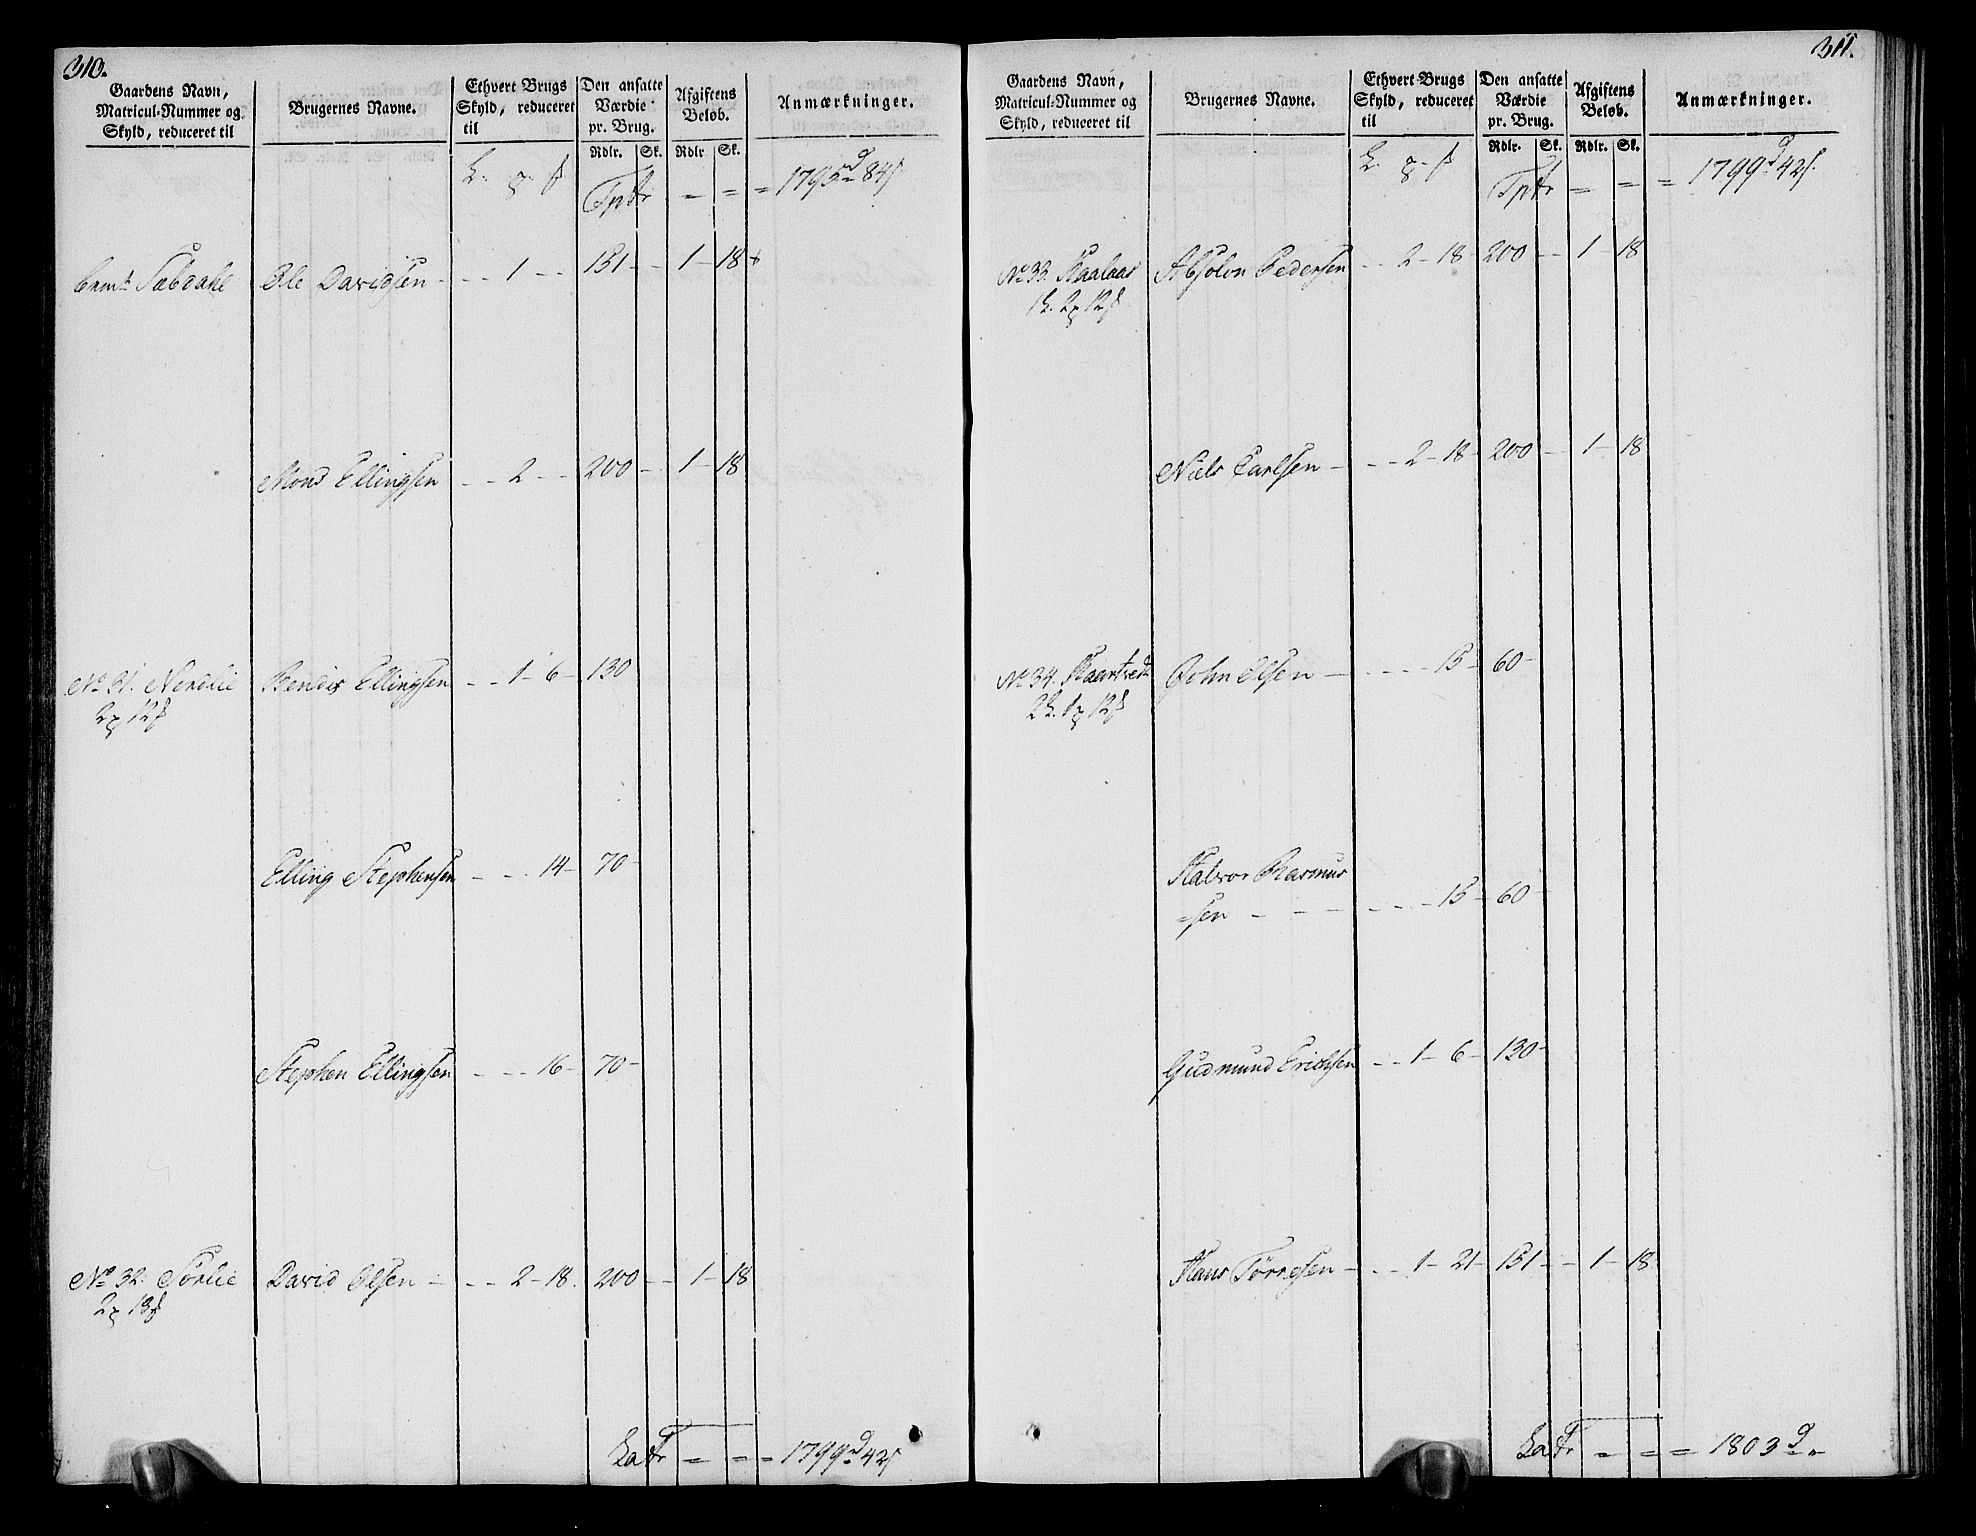 310.
Gaardens Navn, Matricul-Nummer og Skyld, reduceret til
Brugernes Navne.
Ethvert Brugs Skyld, reduceret til
Den ansatte Værdie pr. Brug.
Afgiftens Beløb.
Anmærkninger.
Rdlr. Sk. Rdlr. Sk.
Tptr = = = 1795d 84s
Sæbdahl Ole Davidsen - - 1 - - 151 - - 1 - 18
Mons Ellingsen - - 2 - - 200 - - 1 - 18
No 31. Nerdlie Bendix Ellingsen - - 1 - 6 - 130
12
Elling Stephensen - - - 14 - 70 -
Stephen Ellingsen - - - 16 - 70 -
No 32. Sørlie David Olsen - - - 2 - 18. 200 - - 1 - 18
18
Latr = = = 1799d 42s
311.
Gaardens Navn, Matricul-Nummer og Skyld, reduceret til
Brugernes Navne.
Ethvert Brugs Skyld, reduceret til
Den ansatte Værdie pr. Brug.
Afgiftens Beløb.
Anmærkninger.
Rdlr. Sk. Rdlr. Sk.
Tptr = = = 1799d 42s.
No 33. Absolon Pedersen - - 2 - 18 - 200 - - 1 - 18
12
Niels Carlsen - - - 2 - 18 - 200 - - 1 - 18
No 34. John Olsen - - - - 15 - 60 -
12
Halvor Rasmus
=sen - - - - - - 15 - 60 -
Gudmund Erichsen - - 1 - 6 - 130 -
Hans Tørresen - - - 1 - 21 - 151 - - 1 - 18
Latr = = = 1803d